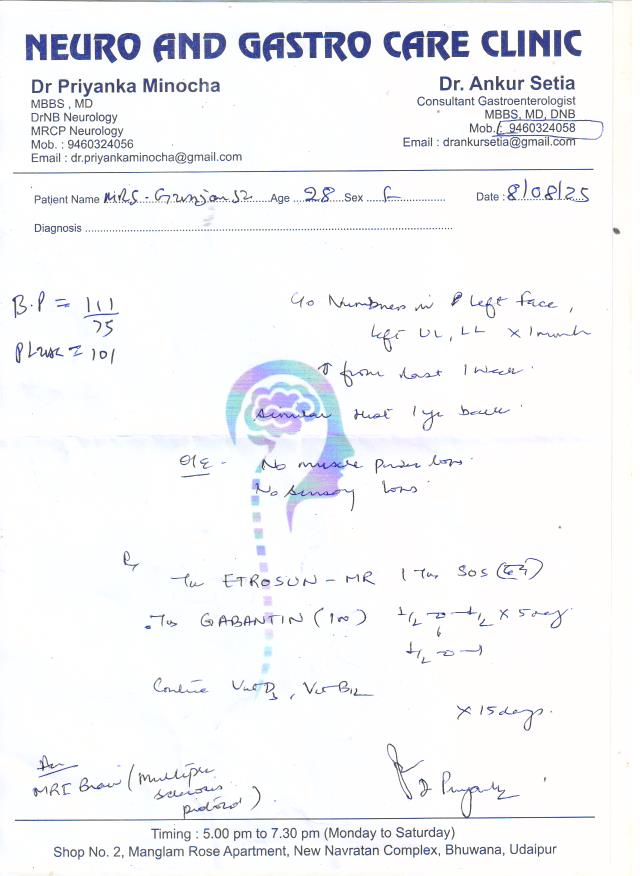 NEURO AND GASTRO CARE CLINIC
Dr Priyanka Minocha
MBBS , MD
DrNB Neurology
MRCP Neurology
Mob. : 9460324056
Email : dr.priyankaminocha@gmail.com
Dr. Ankur Setia
Consultant Gastroenterologist
MBBS, MD, DNB
Mob. : 9460324058
Email : drankursetia@gmail.com
Patient Name MRS - Gunjan Age 28 Sex F Date : 8/08/25
Diagnosis
B.P = 111/75
Pulse = 101
C/o Numbness in left face,
left UL, LL x 1 month
↑ from last 1 week.
similar 1 yr back.
O/E - No muscle power loss.
No sensory loss.
Rx
Tab ETROSUN - MR 1 Tab SOS
Tab GABANTIN (100) 1/2 - 0 - 1/2 x 5 days
1/2 - 0 - 1
Continue Vit D3, Vit B12
x 15 days.
Adv
MRI Brain (Multiple
sclerosis
protocol)
Dr Priyanka
Timing : 5.00 pm to 7.30 pm (Monday to Saturday)
Shop No. 2, Manglam Rose Apartment, New Navratan Complex, Bhuwana, Udaipur